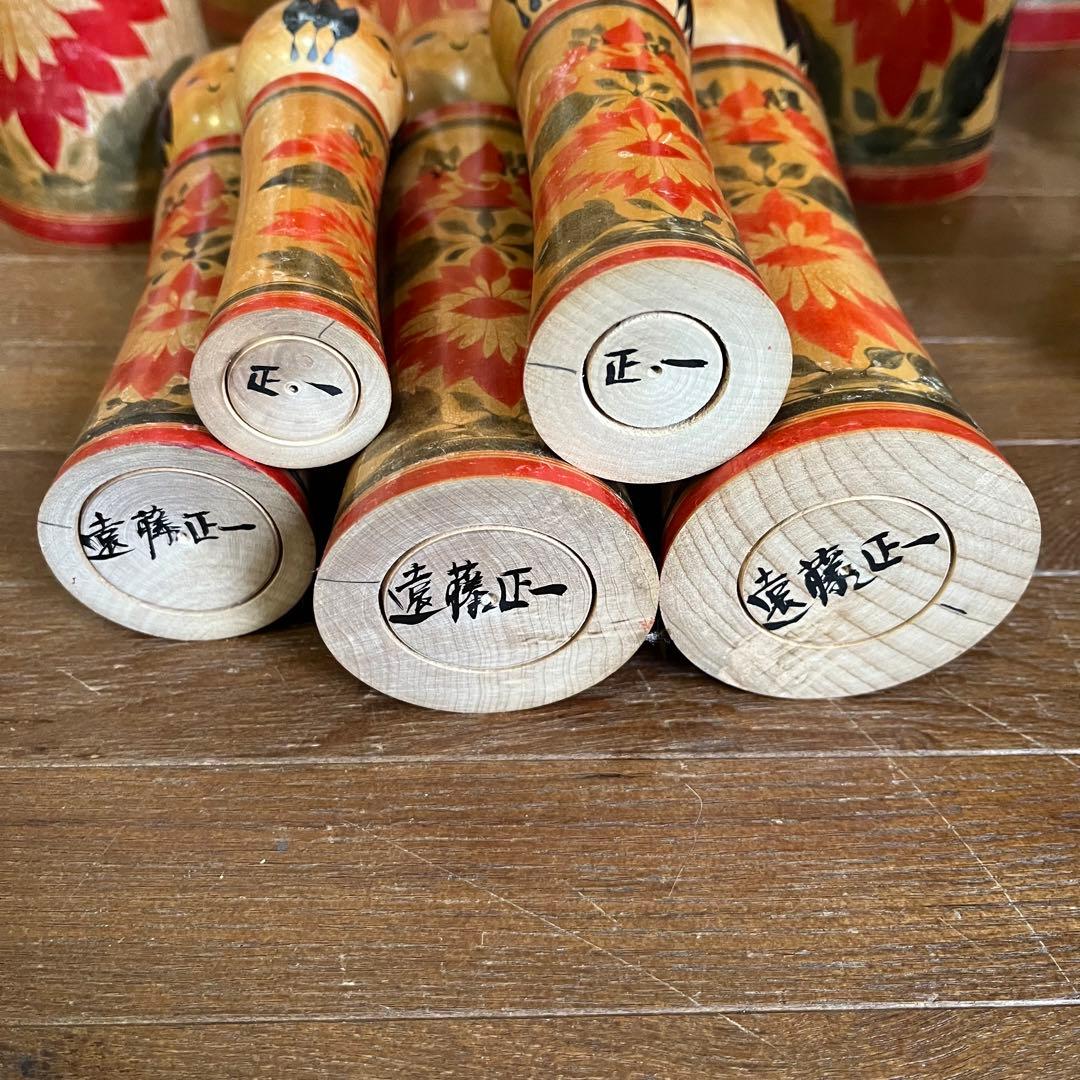 正一
正一
遠藤正一
遠藤正一
遠藤正一